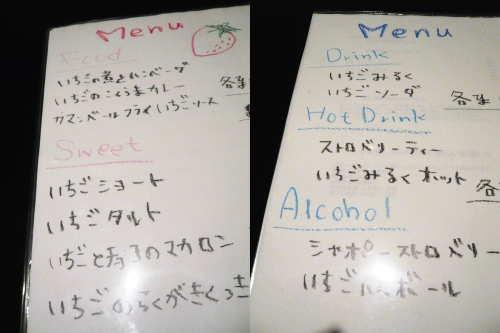 Menu
Food
いちごの煮込ハンバーグ
いちごのこくうまカレー
カマンベールフライいちごソース
各種
Sweet
いちごショート
いちごタルト
いちごと苺のマカロン
いちごのらくがきくっき
Menu
Drink
いちごみるく
いちごソーダ
各種
Hot Drink
ストロベリーティー
いちごみるくホット
各
Alcohol
シャポーストロベリー
いちごハイボール